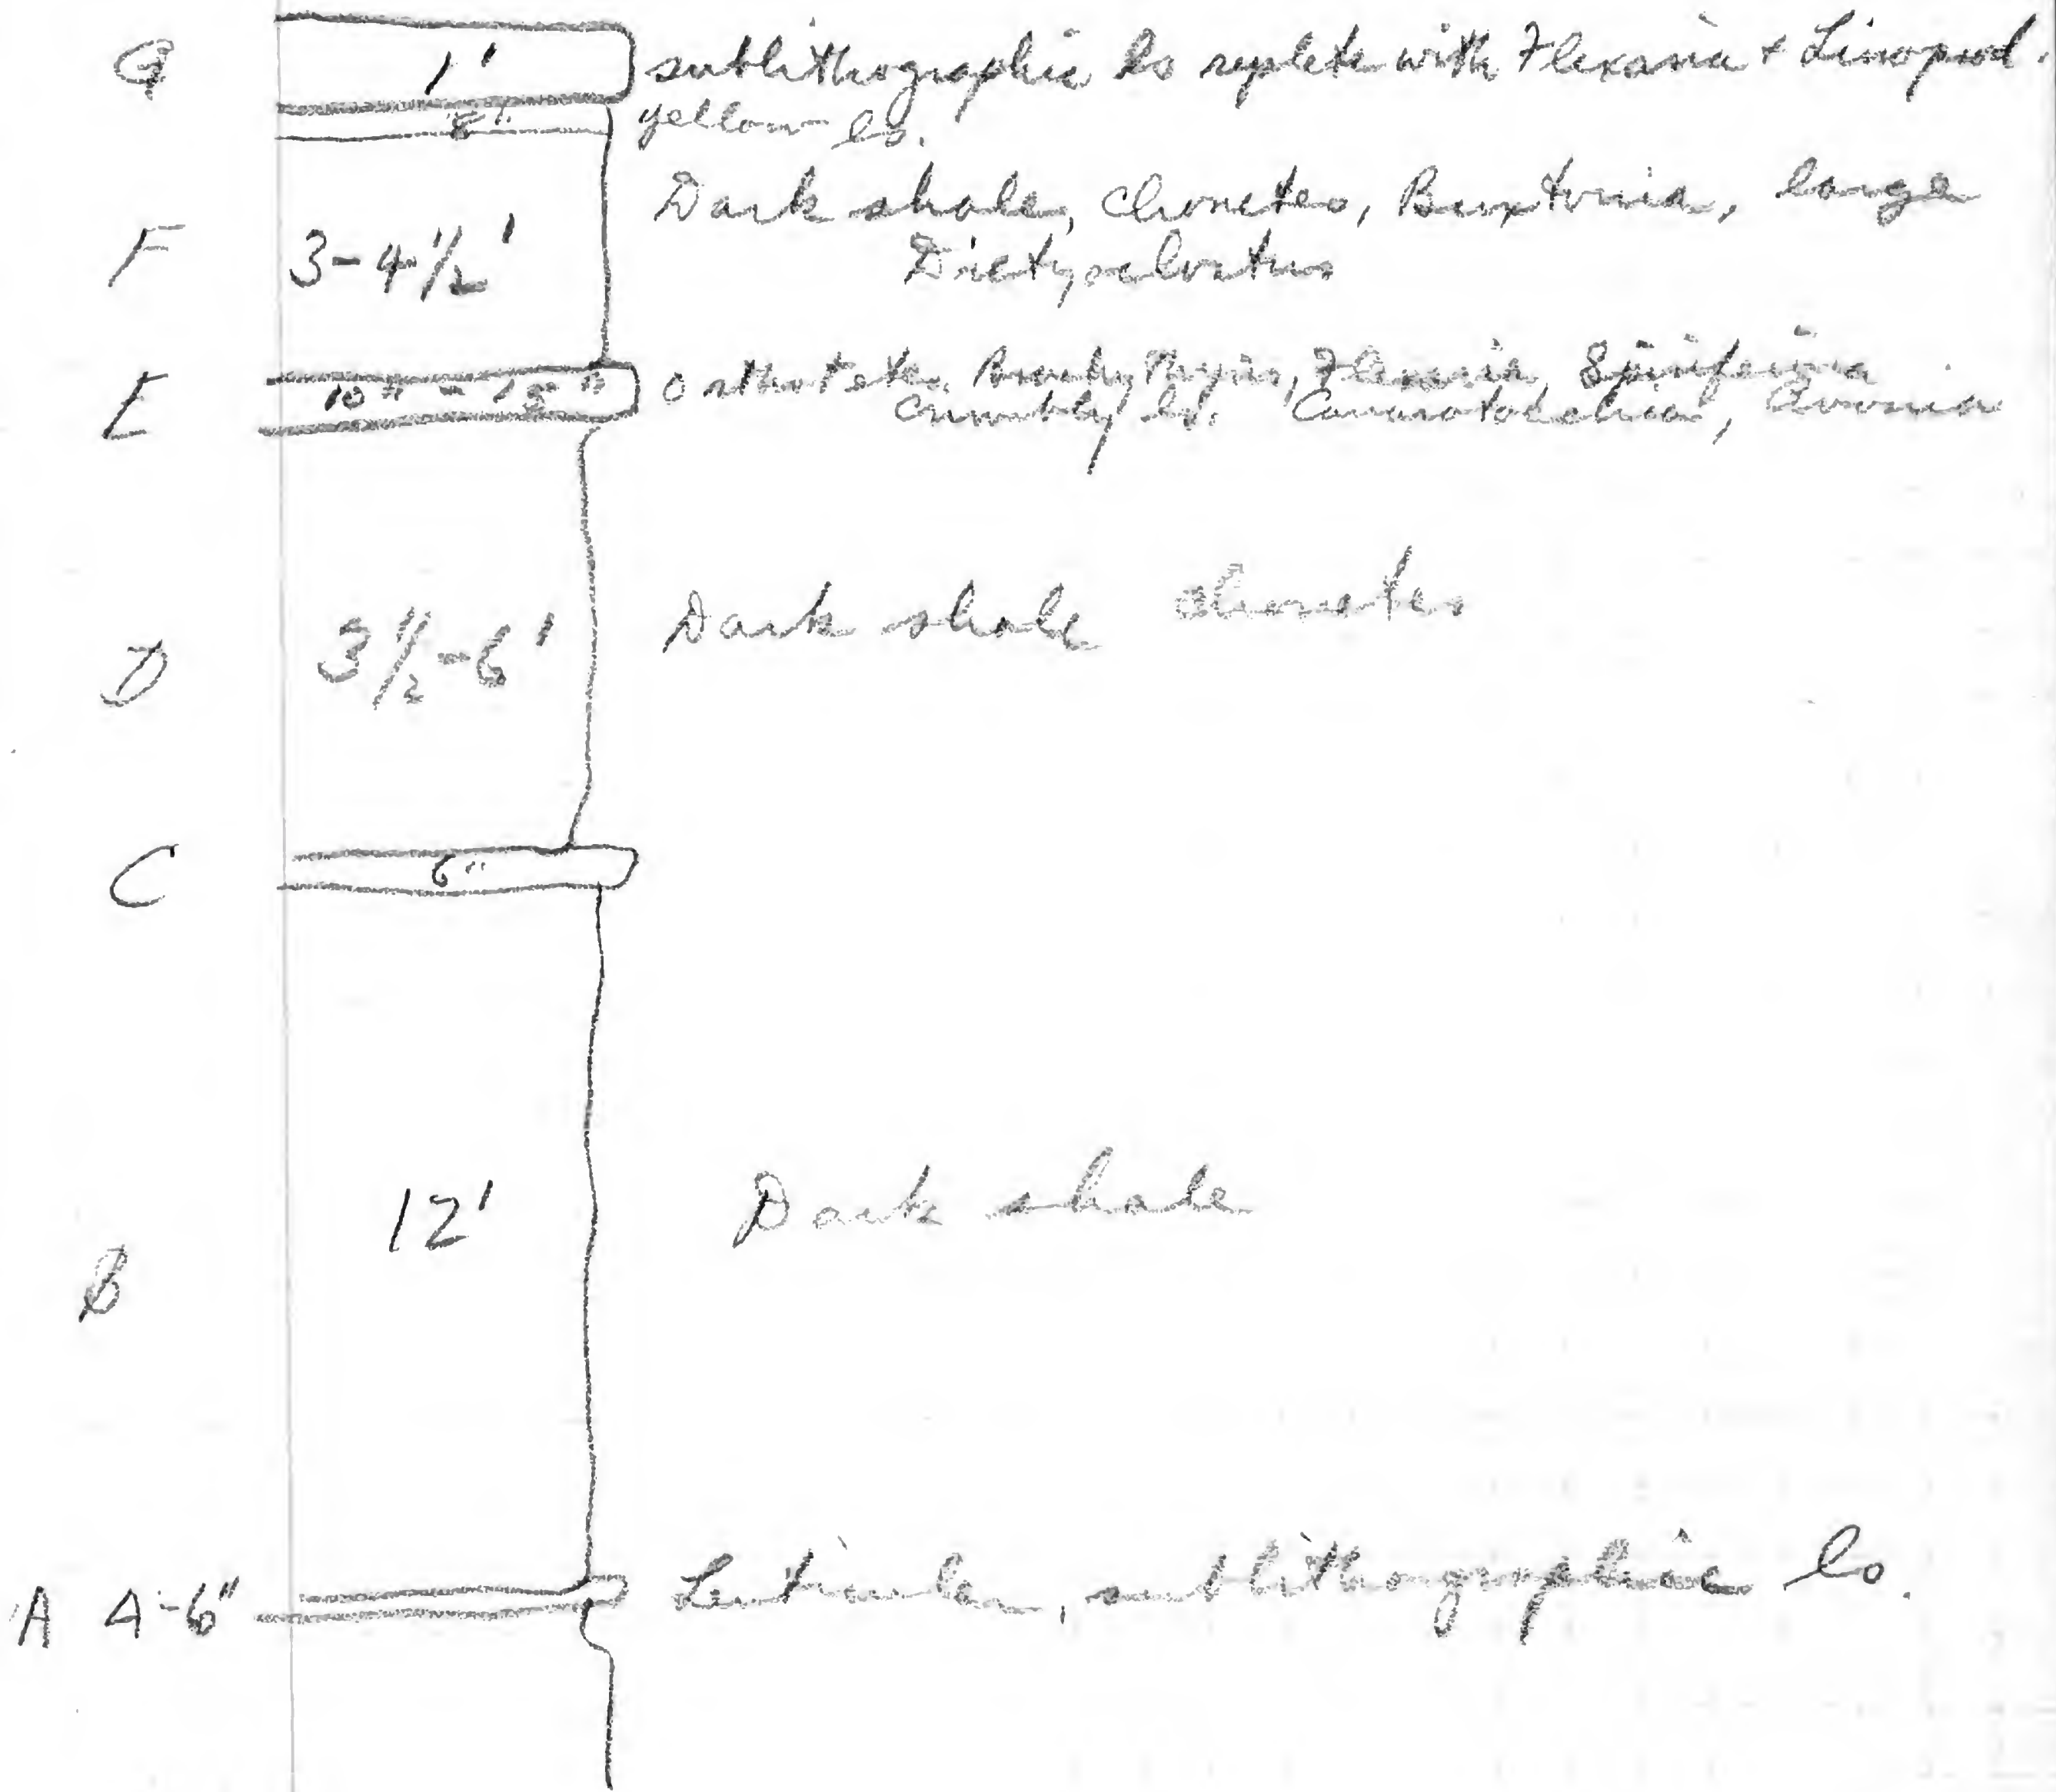 G 1' sublithographic ls replete with Flexaria + Linoprod.
8" yellow ls.
F 3-4 1/2' Dark shale, Chonetes, Buxtonia, large
Dictyoclostus
E 10" - 18" Orthotetes, Brachythyris, Flexaria, Spiriferina
Crumbly ls. Camarotoechia, Avonia
D 3 1/2-6' Dark shale chonetes
C 6"
B 12' Dark shale
A 4-6" Lenticular, sublithographic ls.